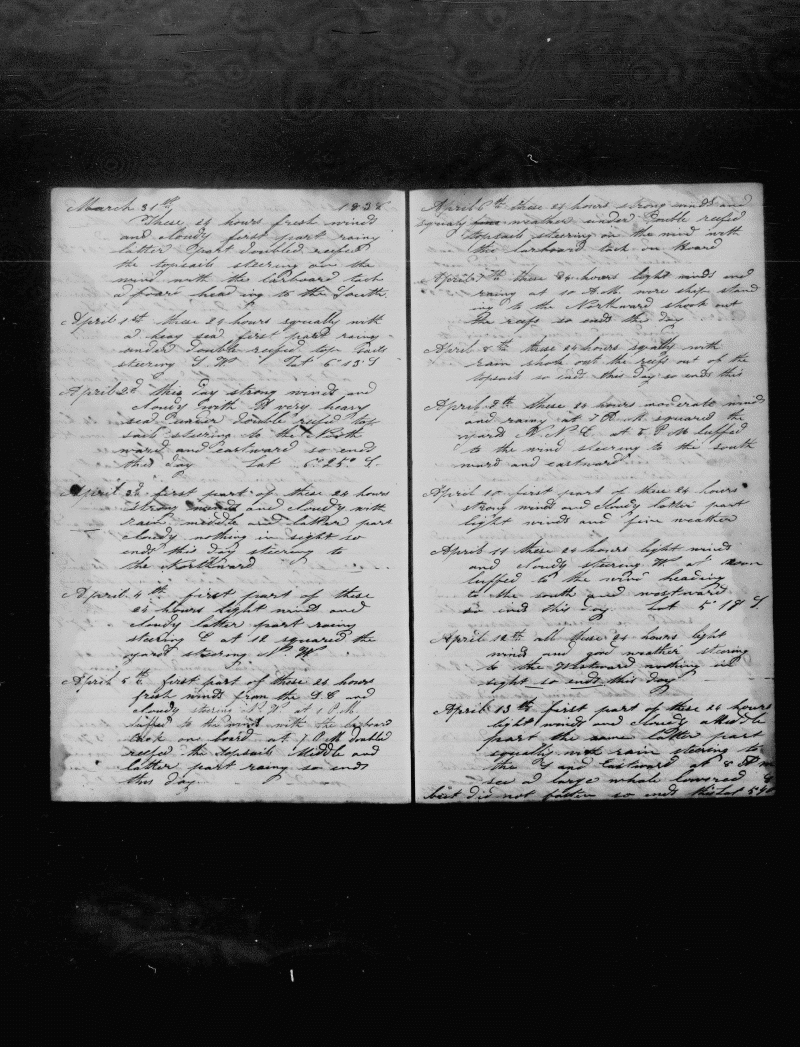 March 31th 1838
These 24 hours fresh winds
and cloudy first part rainy
latter part doubled reefed
the topsails steering on the
wind with the larboard tack
a board heading to the South
April 1st these 24 hours squally with
a heavy sea first part rainy
under double reefed top sails
steering S W Lat 6 13 S
April 2d this day strong winds and
cloudy with A very heavy
sea under double reefed top
sails steering to the North
ward and eastward so ends
this day Lat 6 25 S
April 3d first part of these 24 hours
strong winds and cloudy with
rain middle and latter part
cloudy nothing in sight so
ends this day steering to
the Northward
April 4th first part of these
24 hours light winds and
cloudy latter part rainy
steering E at 12 squared the
yards steering N W
April 5th first part of these 24 hours
fresh winds from the S E and
cloudy steering at 1 P.M.
luffed to the wind with the larboard
tack on board at 7 P M double
reefed the topsails Middle and
latter part rainy so ends
this day
April 6th these 24 hours strong winds and
squaly weather under double reefed
topsails steering on the wind with
the larboard tack on board
April 7th these 24 hours light winds and
rainy at 10 A.M. wore ship stand
ing to the Northward shook out
the reefs so ends this day
April 8th these 24 hours squally with
rain shook out the reefs out of the
topsails so ends this day so ends this
April 9th these 24 hours moderate winds
and rainy at 7 A M squared the
yards N N E at 5 P M luffed
to the wind steering to the south
ward and eastward
April 10 first part of these 24 hours
strong winds and cloudy latter part
light winds and fine weather
April 11 these 24 hours light winds
and cloudy steering W at noon
luffed to the wind heading
to the south and westward
so ends this day Lat 5 18 S
April 12th all these 24 hours light
winds and good weather steering
to the Westward nothing in
sight so ends this day
April 13th first part of these 24 hours
light winds and cloudy middle
part the same latter part
squally with rain steering to
the S and Eastward at 8
see a large whale lowered
but did not fasten so ends this Lat